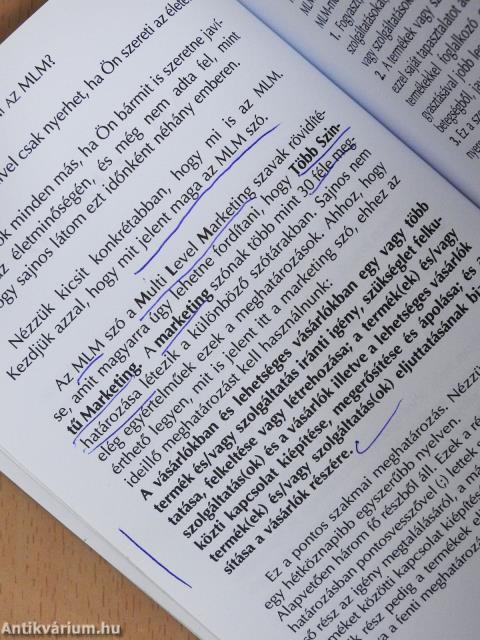 AZ MLM?
ivel csak nyerhet, ha Ön szereti az élete
ok minden más, ha Ön bármit is szeretne javí-
az életminőségén, és még nem adta fel, mint
ogy sajnos látom ezt időnként néhány emberen.
Nézzük kicsit konkrétabban, hogy mi is az MLM.
Kezdjük azzal, hogy mit jelent maga az MLM szó.
Az MLM szó a Multi Level Marketing szavak rövidíté-
se, amit magyarra úgy lehetne fordítani, hogy Több Szin-
tű Marketing. A marketing szónak több mint 30 féle meg-
határozása létezik a különböző szótárakban. Sajnos nem
elég egyértelműek ezek a meghatározások. Ahhoz, hogy
érthető legyen, mit is jelent itt a marketing szó, ehhez az
ideillő meghatározást kell használnunk:
A vásárlókban és lehetséges vásárlókban egy vagy több
termék és/vagy szolgáltatás iránti igény, szükséglet felku-
tatása, felkeltése vagy létrehozása; a termék(ek) és/vagy
szolgáltatás(ok) és a vásárlók illetve a lehetséges vásárlók
közti kapcsolat kiépítése, megerősítése és ápolása; és a
termék(ek) és/vagy szolgáltatás(ok) eljuttatásának biz
sítása a vásárlók részére.
Ez a pontos szakmai meghatározás. Nézzü
egy hétköznapibb egyszerűbb nyelven.
Alapvetően három fő részből áll. Ezek a ré
határozásban pontosvesszővel (;) lettek
ső rész az igény megtalálásáról, a má
méket közötti kapcsolat kiépítés
k rész pedig a termékek el
a fenti meghatároz
MLM-m
1. Fogyaszt
szolgáltatásoka
vagy szolgáltatások
2. A termékek vagy sz
ezzel saját tapasztalatot a
termékekkel foglalkozó
gyasztásával jobb
betegségből, jav
3. Ez a sz
nyer
Antikvárium.hu